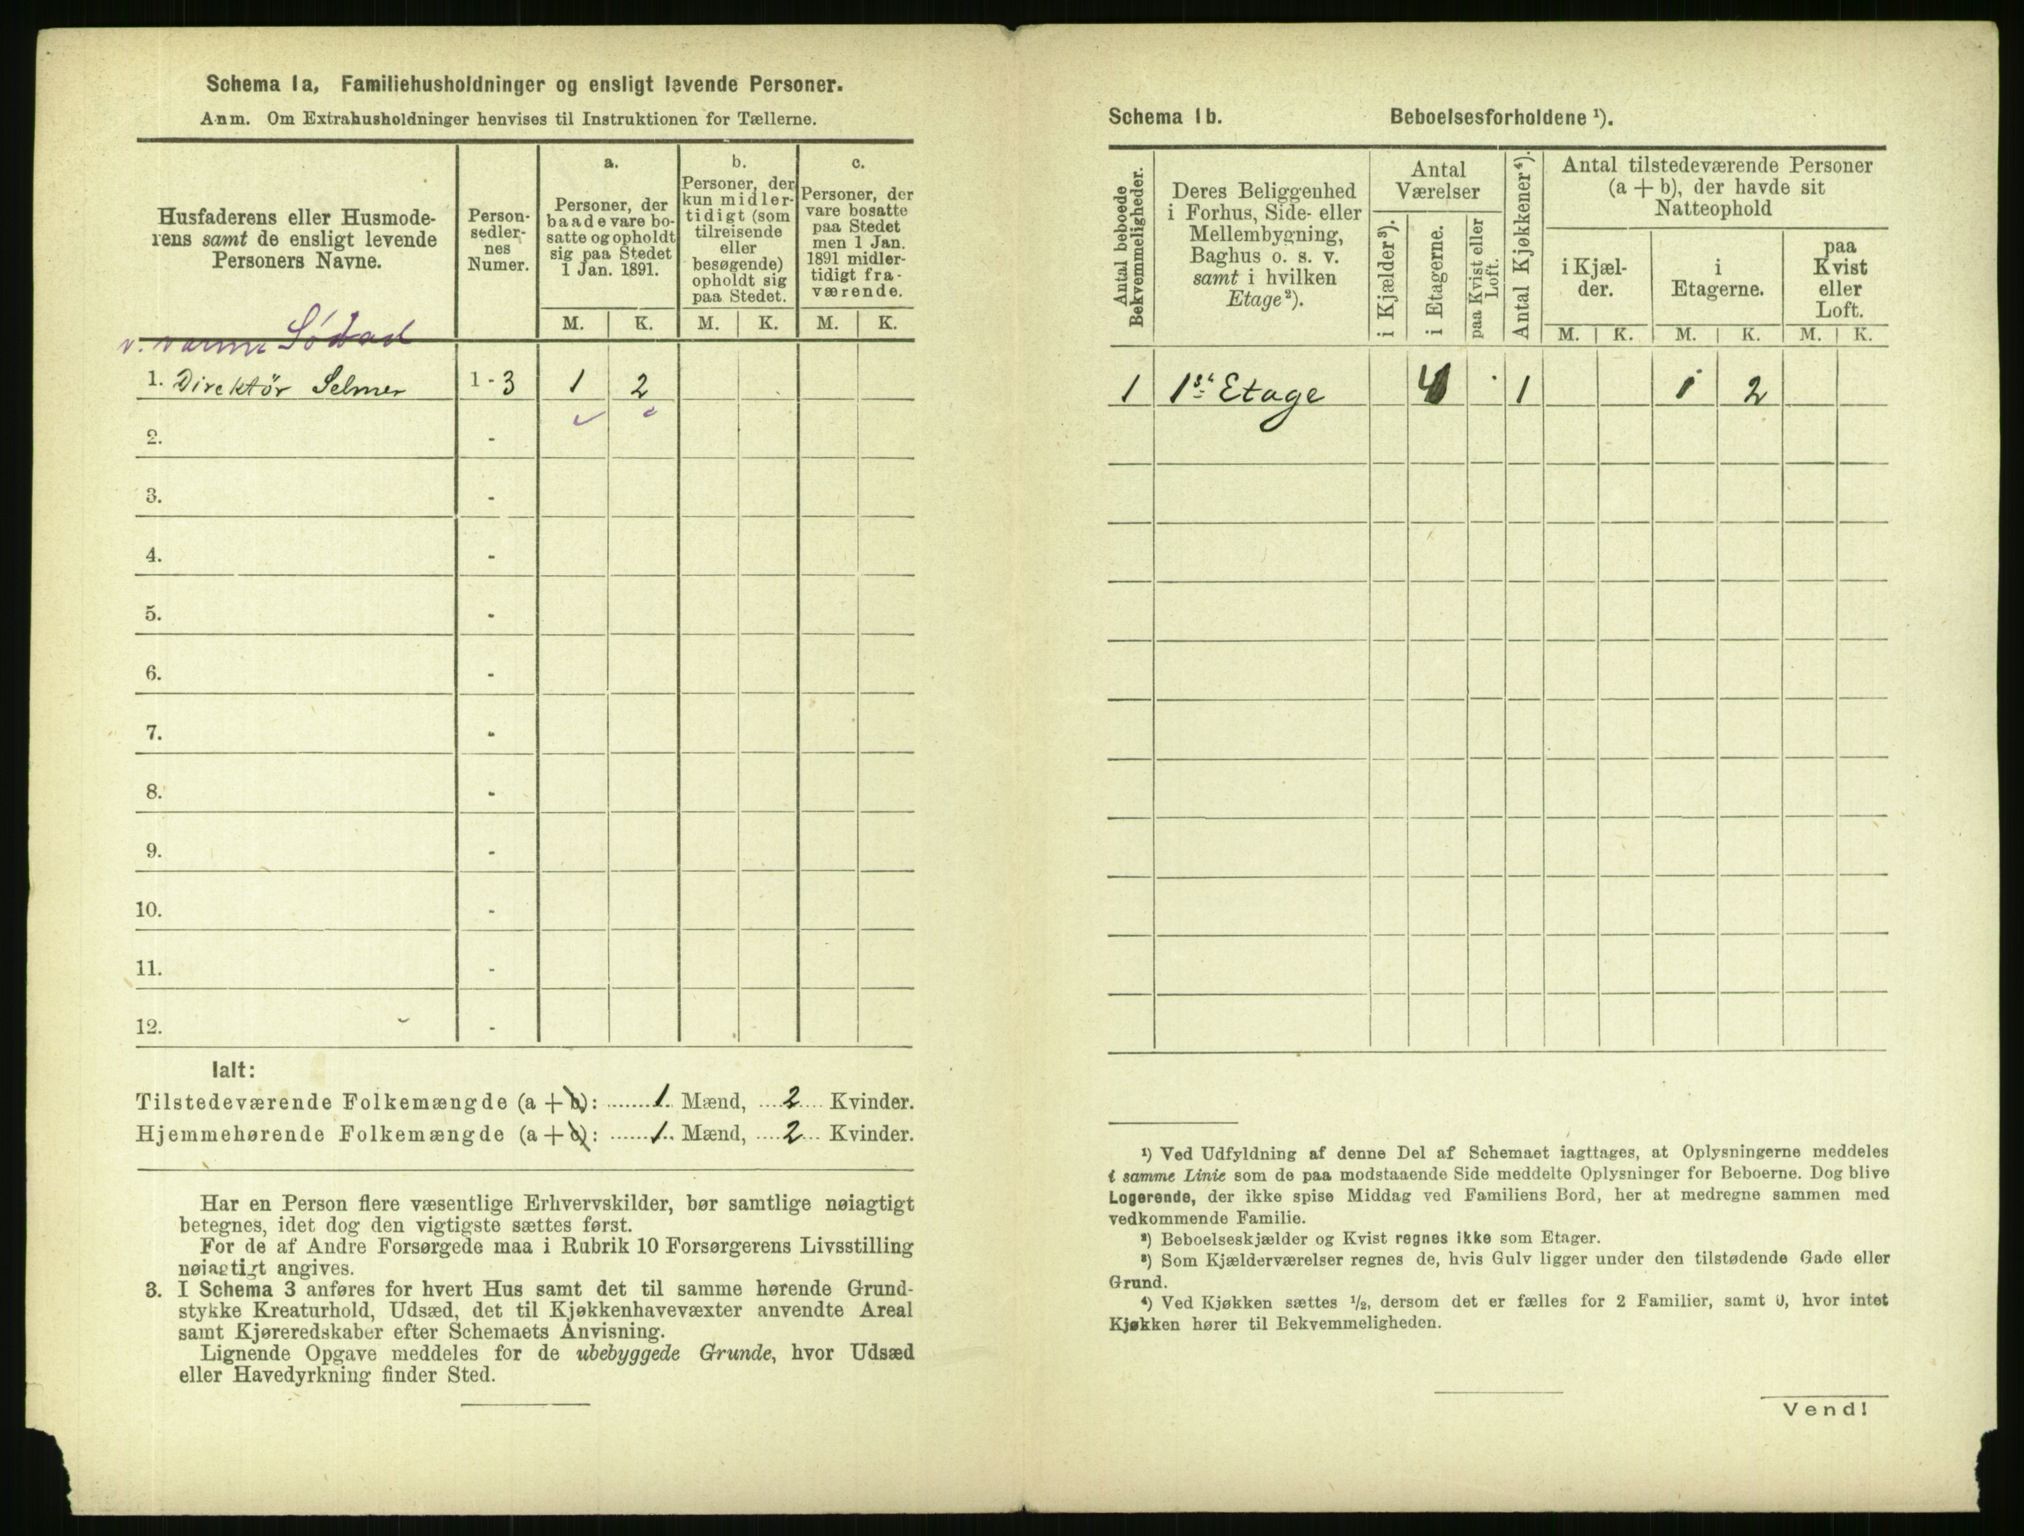 Schema 1a, Familiehusholdninger og ensligt levende Personer.
Anm. Om Extrahusholdninger henvises til Instruktionen for Tællerne.
Husfaderens eller Husmode-
rens samt de ensligt levende
Personers Navne.
Person-
sedler-
nes
Numer.
a.
Personer, der
baade vare bo-
satte og opholdt
sig paa Stedet
1 Jan. 1891.
b.
Personer, der
kun midler-
tidigt (som
tilreisende
eller
besøgende)
opholdt sig
paa Stedet.
c.
Personer, der
vare bosatte
paa Stedet
men 1 Jan.
1891 midler-
tidigt fra-
værende.
M. K. M. K. M. K.
v. varme Södbad
1. Direktør Selmer 1 - 3 1 2
2. -
3. -
4. -
5. -
6. -
7. -
8. -
9. -
10. -
11. -
12. -
Ialt:
Tilstedeværende Folkemængde (a + b): 1 Mænd, 2 Kvinder.
Hjemmehørende Folkemængde (a + c): 1 Mænd, 2 Kvinder.
Har en Person flere væsentlige Erhvervskilder, bør samtlige nøiagtigt
betegnes, idet dog den vigtigste sættes først.
For de af Andre Forsørgede maa i Rubrik 10 Forsørgerens Livsstilling
nøiagtigt angives.
3. I Schema 3 anføres for hvert Hus samt det til samme hørende Grund-
stykke Kreaturhold, Udsæd, det til Kjøkkenhavevæxter anvendte Areal
samt Kjøreredskaber efter Schemaets Anvisning.
Lignende Opgave meddeles for de ubebyggede Grunde, hvor Udsæd
eller Havedyrkning finder Sted.
Schema 1b. Beboelsesforholdene ¹).
Antal beboede
Bekvemmeligheder.
Deres Beliggenhed
i Forhus, Side- eller
Mellembygning,
Baghus o. s. v.
samt i hvilken
Etage²).
Antal
Værelser
i Kjælder³).
i Etagerne.
paa Kvist eller
Loft.
Antal Kjøkkener⁴).
Antal tilstedeværende Personer
(a + b), der havde sit
Natteophold
i Kjæl-
der.
i
Etagerne.
paa
Kvist
eller
Loft.
M. K. M. K. M. K.
1 1ste Etage 4 1 1 2
¹) Ved Udfyldning af denne Del af Schemaet iagttages, at Oplysningerne meddeles
i samme Linie som de paa modstaaende Side meddelte Oplysninger for Beboerne. Dog blive
Logerende, der ikke spise Middag ved Familiens Bord, her at medregne sammen med
vedkommende Familie.
²) Beboelseskjælder og Kvist regnes ikke som Etager.
³) Som Kjælderværelser regnes de, hvis Gulv ligger under den tilstødende Gade eller
Grund.
⁴) Ved Kjøkken sættes ½, dersom det er fælles for 2 Familier, samt 0, hvor intet
Kjøkken hører til Bekvemmeligheden.
Vend!